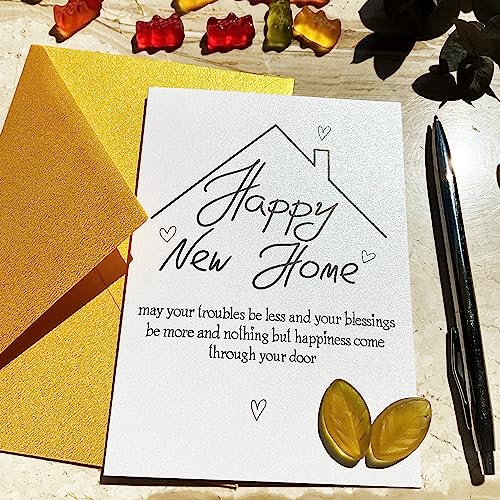 Happy
New Home
may your troubles be less and your blessings
be more and nothing but happiness come
through your door